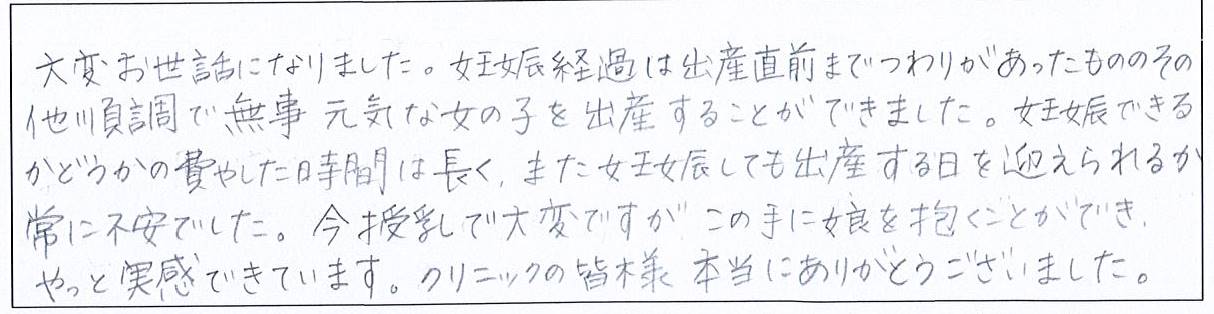 大変お世話になりました。妊娠経過は出産直前までつわりがあったもののその
他順調で無事 元気な女の子を出産することができました。妊娠できる
かどうかの費やした時間は長く、また妊娠しても出産する日を迎えられるか
常に不安でした。今授乳で大変ですが この手に娘を抱くことができ、
やっと実感できています。クリニックの皆様 本当にありがとうございました。